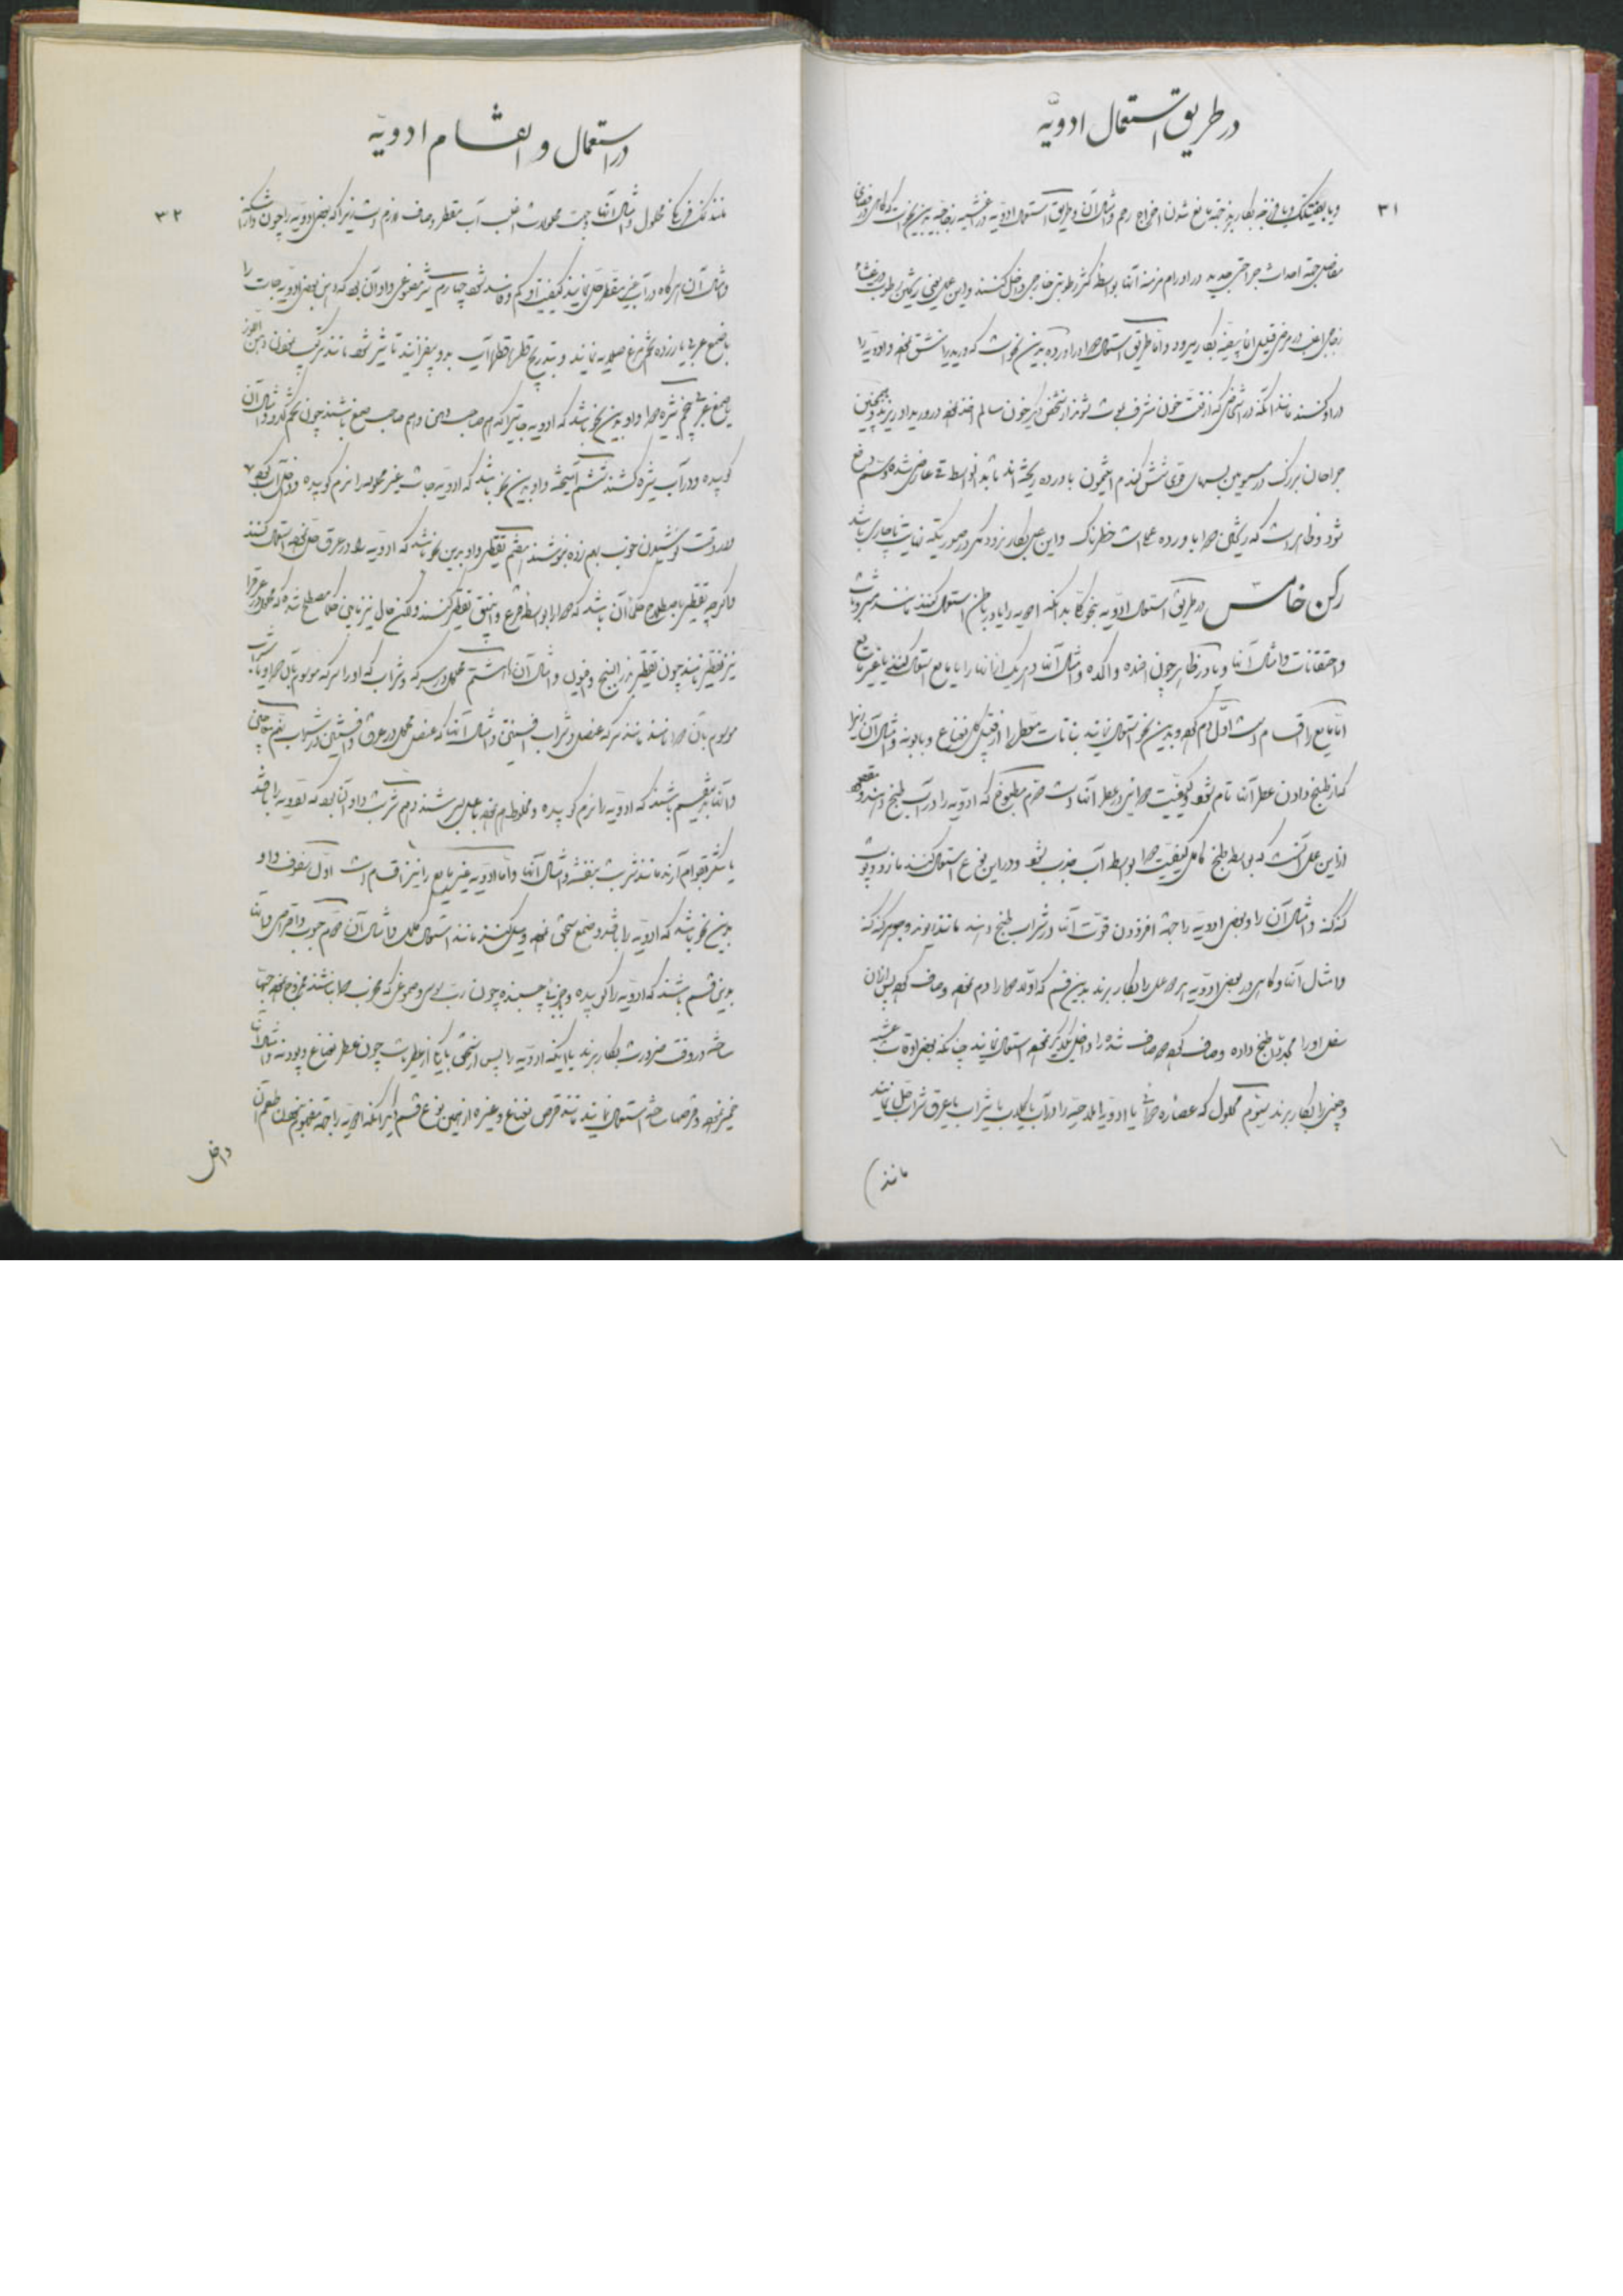 در طریق استعمال ادویّه
۳۱
و یا بفتیلک و یا فرزجه بکار برند جهة مانع شدن اخراج رحم و امثال آن و طریق استعمال ادویه در اغشیه زجاجیه بدین نحو است که گاهی در فضای
مفاصل جهة احداث جراحتی جدید در اورام مزمنه آنها بواسطه رطوبتی خارجی داخل کنند و این عمل یعنی ریختن رطوبت در غشاء
زجاجی اغلب در مرض قیلی بکار میرود و اما طریق استعمال دوا در اورده بدین نحو است که ورید را شق نموده و ادویه را
در او کنند مانند آنکه در اشخاصی که از قلت خون مشرف بموت شوند از شخص دیگر خون سالم اخذ نموده در ورید او ریزند و همچنین
جراحان بزرگ در مسمومین بسمهای قوی شش گندم افیون باورده ریخته اند تا شاید بواسطه قی عارض شده سم دفع
شود و ظاهر است که ریختن دوا باورده عملی است خطرناک و این عمل بکار نرود مگر در صورتیکه نهایت ناچاری باشد
رکن خامس در طریق استعمال ادویه بنحو کلی بدانکه ادویه را یا در باطن استعمال کنند مانند مشروبات
و احتقانات و امثال آنها و یا در ظاهر چون اضمده و اکمده و امثال آنها و هر یک از آنها را یا مایع استعمال کنند یا غیر مایع
اما مایع را اقسام است اول دم کرده و بدین نحو استعمال نمایند نباتات معطر را از قبیل گل نعناع و بابونه و امثال آن زیرا
که از طبخ دادن عطر آنها تمام شود و کیفیت دوائی در عطر آنها است دوم مطبوخ که ادویه را در آب طبخ دهند و مقصود
از این عمل آنست که بواسطه طبخ کامل کیفیت دوا بواسطه آب جذب شود و در این نوع استعمال کنند مازو و پوست
گنه گنه و امثال آن را و بعضی ادویه را جهة افزودن قوت آنها در شراب طبخ دهند مانند و جوهر گنه گنه
و امثال آنها و گاهی در بعضی ادویه هر دو عمل را بکار برند بدین قسم که اولا دوا را دم نموده و صاف کرده پس از آن
ثفل او را مجددا طبخ داده و صاف کرده دو صاف شده را داخل یکدیگر نموده استعمال نمایند چنانکه بعضی اوقات عشبه
و چینی را بکار برند سیوم محلول که عصاره دوائی یا ادویه املاحیه را در آب یا گلاب یا شراب یا عرق شراب حل نمایند
مانند
در استعمال و اقسام ادویّه
۳۲
مانند نمک فرنگی محلول و امثال آنها و جهت محلولات اغلب آب مقطر و صاف لازم است زیرا که بعضی ادویه را چون سنگ
و امثال آن هرگاه در آب غیر مقطر حل نمایند کیفیت او کم و فاسد شود چهارم شیر مصنوعی و او آن بود که دهن بعضی ادویه جات را
با صمغ عربی یا زرده تخم مرغ صلایه نمایند و بتدریج قطره قطره آب بدو بیفزایند تا شیر شود مانند ترکیب نمودن دهن اللوز
با صمغ عربی پنجم شیره دوا و او بدین نحو باشد که ادویه جاتیرا که هم صاحب دهن و هم صاحب صمغ باشند چون تخم کدو و امثال آن
کوبیده و در آب شیره کشند ششم آمیخته و او بدین نحو باشد که ادویه جات غیر محلوله را نرم کوبیده و داخل آب کرده
و در وقت نوشیدن خوب بهم زده بنوشند هفتم تقطیر و او بدین نحو باشد که ادویه را در عرق حل نموده استعمال کنند
و اگرچه تقطیر باصطلاح حکما آن باشد که دوا را بواسطه قرع و انبیق تقطیر کنند ولکن حال نیز مابین حکما مصطلح شده که محلول در عرق را
نیز تقطیر نامند چون تقطیر بزر البنج و افیون و امثال آن هشتم محلول در سرکه و شراب که او را سرکه موسوم بآن دوا و یا شراب
موسوم بآن دوا نامند مانند سرکه عنصل و شراب افسنتین و امثال آنها که عنصل محلول در سرکه و افسنتین در شراب نهم معاجین
و آنها بدین قسم باشند که ادویه را نرم کوبیده و مخلوط هم نموده با عسل بسرشند دهم شربت و او آن بود که ادویه را با قند
یا شکر بقوام آرند مانند شربت بنفشه و امثال آنها و اما ادویه غیر مایع را نیز اقسام است اول سفوف و او
بدین نحو باشد که ادویه را با قند و صمغ سحق نموده و میل کنند مانند استعمال کلمل و امثال آن دوم حبوب و اقراص و آنها
بدین قسم باشند که ادویه را کوبیده و با جزئی چسبنده چون رب سوس و صموغی که مخرب دوا نباشند ممزوج نموده حبها
ساخته در وقت ضرورت بکار برند یا اینکه ادویه را پس از سحق با یکی از عطریات چون عطر نعناع و پودنه و امثال آن
خمیر نموده و قرصها ساخته استعمال نمایند مانند قرص نعناع و غیره از همین نوع قسم دیگر آنکه ادویه را جهة مفهوم نبودن طعم آن
داخل